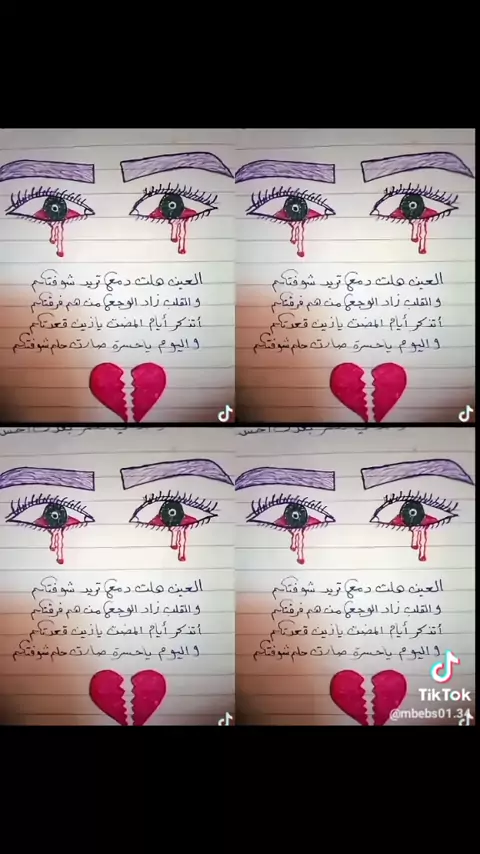 العين هلت دمعي تريد شوفتكم
و القلب زاد الوجعي من هم فرقتكم
أتذكر أيام المضت يازين قعدتكم
و اليوم ياحسرة صارت حلم شوفتكم
العين هلت دمعي تريد شوفتكم
و القلب زاد الوجعي من هم فرقتكم
أتذكر أيام المضت يازين قعدتكم
و اليوم ياحسرة صارت حلم شوفتكم
العين هلت دمعي تريد شوفتكم
و القلب زاد الوجعي من هم فرقتكم
أتذكر أيام المضت يازين قعدتكم
و اليوم ياحسرة صارت حلم شوفتكم
العين هلت دمعي تريد شوفتكم
و القلب زاد الوجعي من هم فرقتكم
أتذكر أيام المضت يازين قعدتكم
و اليوم ياحسرة صارت حلم شوفتكم
TikTok
@mbebs01.34